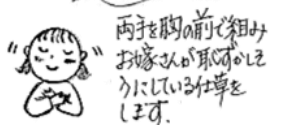 両手を胸の前で組み
お嫁さんが恥ずかしそ
うにしている仕草を
します.